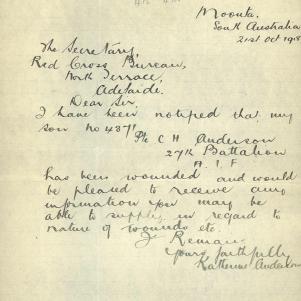 Moonta.
South Australia
21st Oct 1918
The Secretary,
Red Cross Bureau,
North Terrace,
Adelaide.
Dear Sir,
I have been notified that my
son no
Pte C H Anderson
27th Battalion
A. I. F
has been wounded and would
be pleased to receive any
information you may be
able to supply in regard to
nature of wounds etc.
I Remain
Yours faithfully
Katherine Anderson